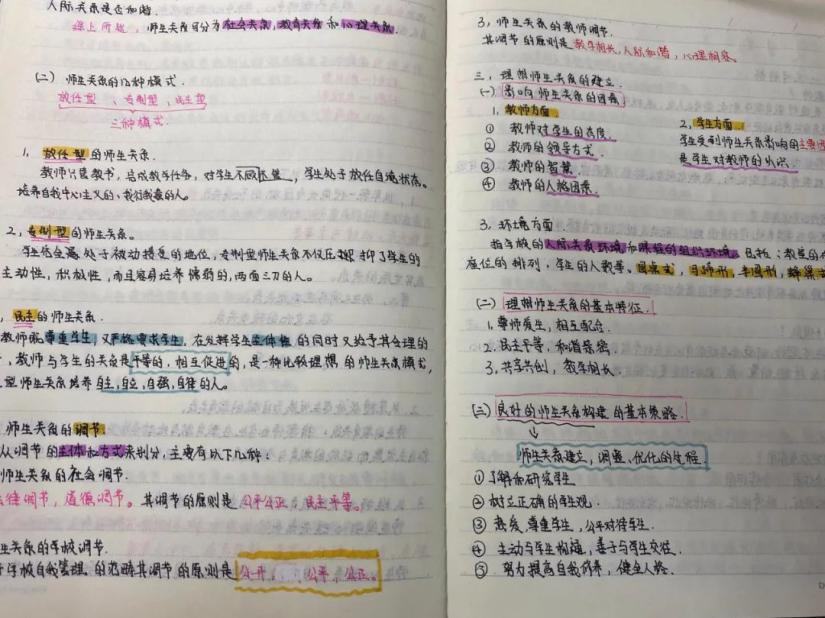 人际关系是否和谐.
综上所述，师生关系可分为社会关系，教育关系和心理关系.
(二) 师生关系的几种模式.
放任型、专制型、民主型
三种模式.
1, 放任型的师生关系.
教师只管教书，完成教学任务，对学生不闻不管，学生处于放任自流状态。
培养自我中心主义的、我行我素的人。
2, 专制型的师生关系。
学生总是处于被动接受的地位，专制型师生关系不仅压抑了学生的
主动性，积极性，而且容易培养懦弱的，两面三刀的人。
民主的师生关系.
教师既尊重学生，又严格要求学生，在发挥学生主体性的同时又给予其合理的
，教师与学生的关系是平等的，相互促进的，是一种比较理想的师生关系模式，
型师生关系培养自主，自立，自强，自律的人。
师生关系的调节.
从调节的主体和方式来划分，主要有以下几种：
师生关系的社会调节.
法律调节，道德调节。其调节的原则是公平公正，民主平等。
生关系的学校调节.
学校自我管理的范畴其调节的原则是公开、公平、公正。
3, 师生关系的教师调节.
其调节的原则是教学相长，人际和谐，心理相容.
三、理想师生关系的建立.
(一) 影响师生关系的因素
1, 教师方面
① 教师对学生的态度.
② 教师的领导方式.
③ 教师的智慧
④ 教师的人格因素.
2, 学生方面.
学生受到师生关系影响的主要
是学生对教师的认识.
3, 环境方面
指学校的人际关系环境和课堂的组织环境。包括：教室的
座位的排列，学生的人数等。圆桌式，马蹄形，半圆形，蜂巢
(二) 理想师生关系的基本特征.
1, 尊师爱生，相互配合.
2, 民主平等，和谐亲密.
3, 共享共创，教学相长.
(三) 良好的师生关系构建的基本策略.
师生关系建立，调整、优化的过程
① 了解和研究学生
② 树立正确的学生观.
③ 热爱、尊重学生，公平对待学生.
④ 主动与学生沟通，善于与学生交往.
⑤. 努力提高自我修养，健全人格.